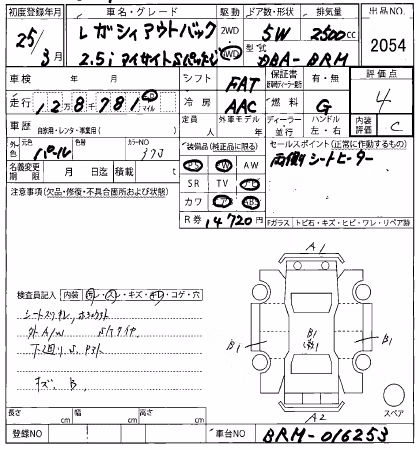 初度登録年月 車名・グレード 駆動 ドア数・形状 排気量 出品NO.
25/3月 レガシィアウトバック 2WD 4WD 5W 2500cc 2054
2.5i アイサイトSパッケージ 型式 DBA-BRM
車検 年 月 シフト FAT 保証書 有・無 評価点
走行 128781 km マイル 冷房 AAC 燃料 G 4
車歴 自家用・レンタ・事業用( ) 定員 人 外車モデル 年車 ディーラー 並行 ハンドル 左・右 内装評価 C
外色 元色 パール 色替 カラーNO 37J 装備品(純正品に限る) セールスポイント(正常に作動するもの)
名義変更期限 月 日迄 積載 t PS PW AW 両側シートヒーター
注意事項(欠品・修復・不具合箇所および状態) SR TV ナビ
カワ エア AB
R券 14720円 Fガラス トビ石・キズ・ヒビ・ワレ・リペア跡
A1
検査員記入 内装 汚レ・スレ・キズ・キレ・コゲ・穴
シートスリキレ
外A/W
下回りS
キズ、B
B1 B1 B1
A2
スペア
長さ cm 幅 cm 高さ cm
登録NO 車台NO BRM-016253